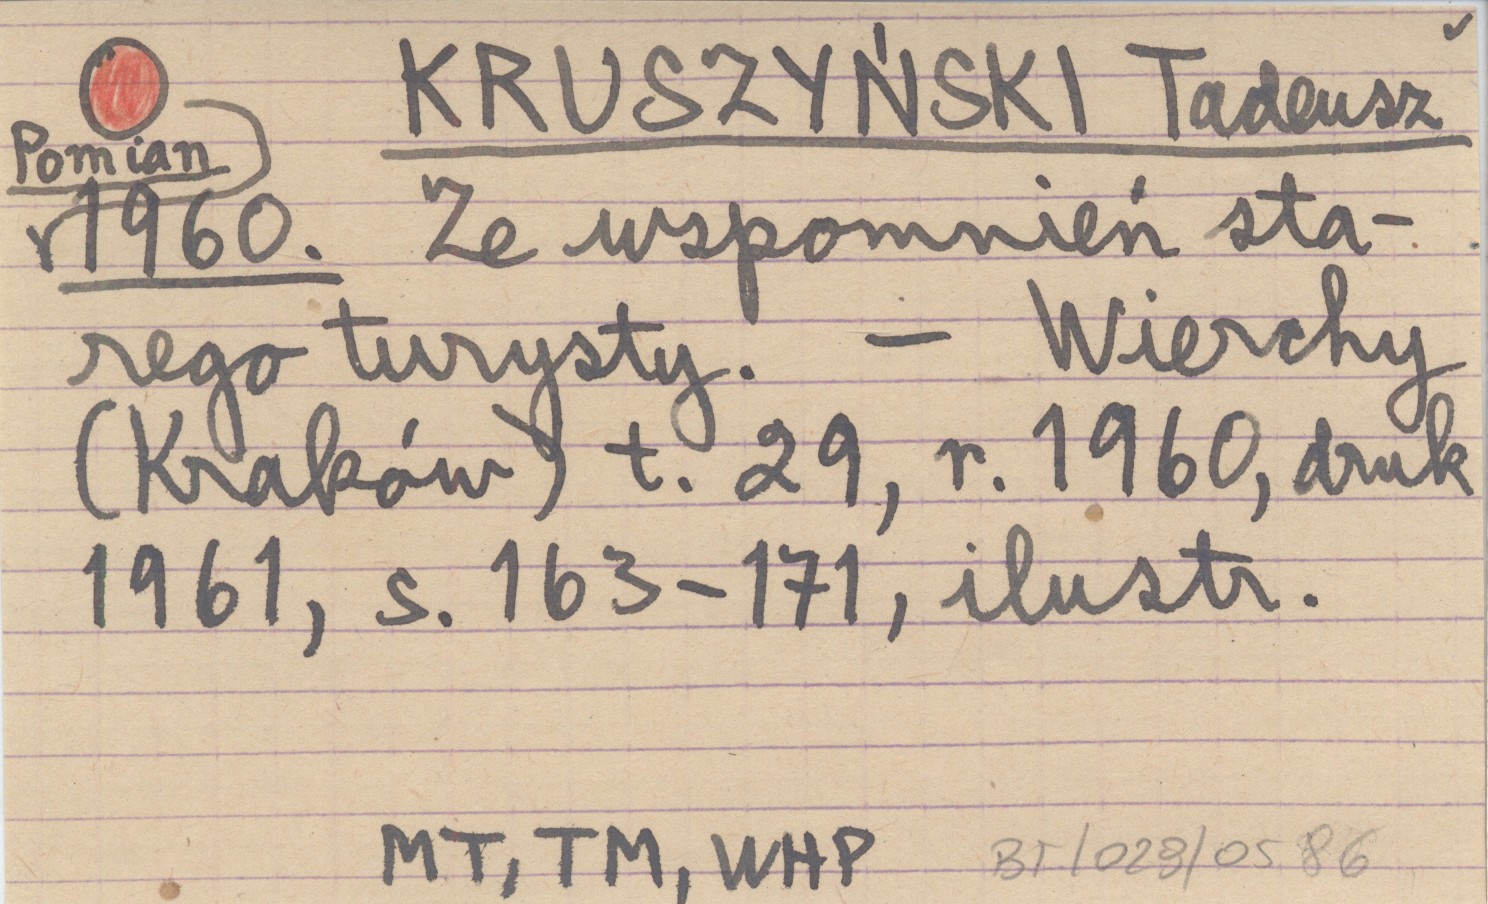 KRUSZYŃSKI Tadeusz
Pomian
1960. Ze wspomnień sta-
rego turysty. – Wierchy
(Kraków) t. 29, r. 1960, druk
1961, s. 163–171, ilustr.
MT, TM, WHP
BT/028/0586